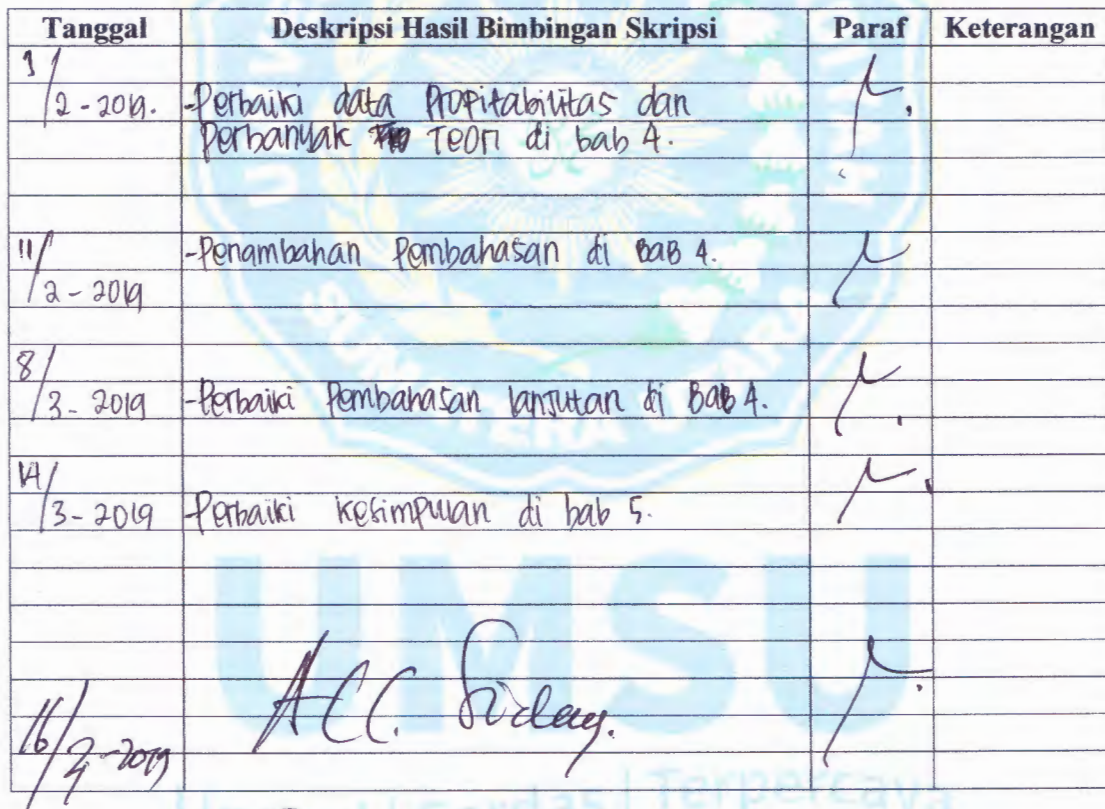 Tanggal Deskripsi Hasil Bimbingan Skripsi Paraf Keterangan
1/2-2019. -Perbaiki data Propitabilitas dan
Perbanyak Teori di bab 4.
11/2-2019 -Penambahan Pembahasan di BAB 4.
8/3-2019 -Perbaiki Pembahasan lanjutan di BAB 4.
14/3-2019 -Perbaiki kesimpulan di bab 5.
ACC. Sidang.
16/ -2019
UMSU
Cerdas | Terpercaya